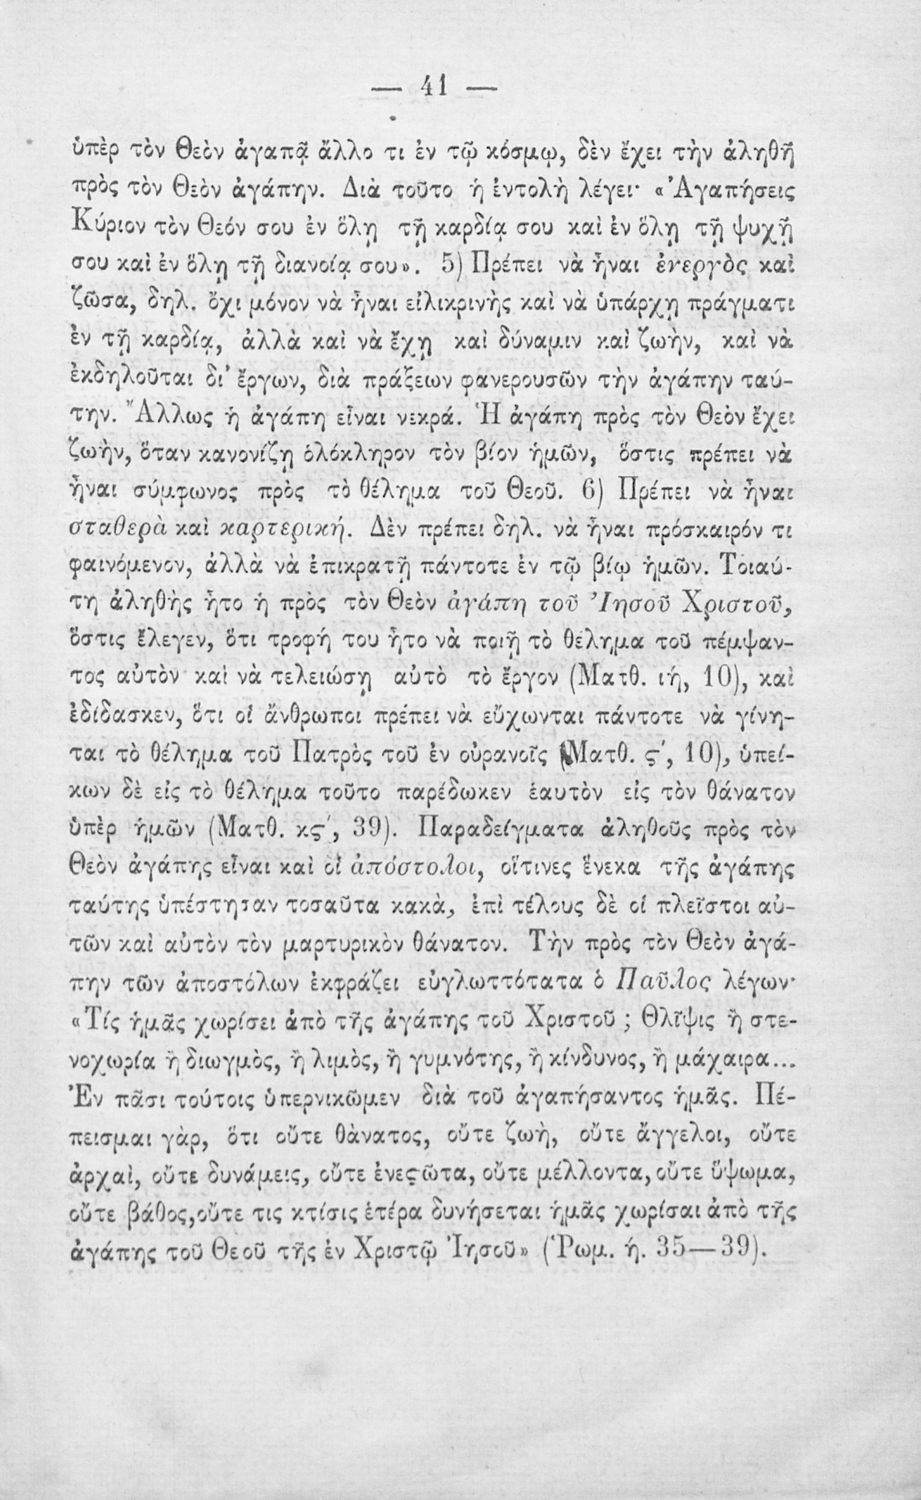 — 41 —
ὑπὲρ τὸν Θεὸν ἀγαπᾷ ἄλλο τι ἐν τῷ κόσμῳ, δὲν ἔχει τὴν ἀληθῆ
πρὸς τὸν Θεὸν ἀγάπην. Διὰ τοῦτο ἡ ἐντολὴ λέγει· «Ἀγαπήσεις
Κύριον τὸν Θεόν σου ἐν ὅλῃ τῇ καρδίᾳ σου καὶ ἐν ὅλῃ τῇ ψυχῇ
σου καὶ ἐν ὅλῃ τῇ διανοίᾳ σου». 5) Πρέπει νὰ ἦναι ἐνεργὸς καὶ
ζῶσα, δηλ. ὄχι μόνον νὰ ἦναι εἰλικρινὴς καὶ νὰ ὑπάρχῃ πράγματι
ἐν τῇ καρδίᾳ, ἀλλὰ καὶ νὰ ἔχῃ καὶ δύναμιν καὶ ζωὴν, καὶ νὰ
ἐκδηλοῦται δι’ ἔργων, διὰ πράξεων φανερουσῶν τὴν ἀγάπην ταύ-
την. Ἄλλως ἡ ἀγάπη εἶναι νεκρά. Ἡ ἀγάπη πρὸς τὸν Θεὸν ἔχει
ζωὴν, ὅταν κανονίζῃ ὁλόκληρον τὸν βίον ἡμῶν, ὅστις πρέπει νὰ
ἦναι σύμφωνος πρὸς τὸ θέλημα τοῦ Θεοῦ. 6) Πρέπει νὰ ἦναι
σταθερὰ καὶ καρτερική. Δὲν πρέπει δηλ. νὰ ἦναι πρόσκαιρόν τι
φαινόμενον, ἀλλὰ νὰ ἐπικρατῇ πάντοτε ἐν τῷ βίῳ ἡμῶν. Τοιαύ-
τη ἀληθὴς ἦτο ἡ πρὸς τὸν Θεὸν ἀγάπη τοῦ Ἰησοῦ Χριστοῦ,
ὅστις ἔλεγεν, ὅτι τροφή του ἦτο νὰ ποιῇ τὸ θέλημα τοῦ πέμψαν-
τος αὐτὸν καὶ νὰ τελειώσῃ αὐτὸ τὸ ἔργον (Ματθ. ιή, 10), καὶ
ἐδίδασκεν, ὅτι οἱ ἄνθρωποι πρέπει νὰ εὔχωνται πάντοτε νὰ γίνη-
ται τὸ θέλημα τοῦ Πατρὸς τοῦ ἐν οὐρανοῖς (Ματθ. ϛ', 10), ὑπεί-
κων δὲ εἰς τὸ θέλημα τοῦτο παρέδωκεν ἑαυτὸν εἰς τὸν θάνατον
ὑπὲρ ἡμῶν (Ματθ. κϛ', 39). Παραδείγματα ἀληθοῦς πρὸς τὸν
Θεὸν ἀγάπης εἶναι καὶ οἱ ἀπόστολοι, οἵτινες ἕνεκα τῆς ἀγάπης
ταύτης ὑπέστησαν τοσαῦτα κακὰ, ἐπὶ τέλους δὲ οἱ πλεῖστοι αὐ-
τῶν καὶ αὐτὸν τὸν μαρτυρικὸν θάνατον. Τὴν πρὸς τὸν Θεὸν ἀγά-
πην τῶν ἀποστόλων ἐκφράζει εὐγλωττότατα ὁ Παῦλος λέγων·
«Τίς ἡμᾶς χωρίσει ἀπὸ τῆς ἀγάπης τοῦ Χριστοῦ ; Θλῖψις ἢ στε-
νοχωρία ἢ διωγμὸς, ἢ λιμὸς, ἢ γυμνότης, ἢ κίνδυνος, ἢ μάχαιρα...
Ἐν πᾶσι τούτοις ὑπερνικῶμεν διὰ τοῦ ἀγαπήσαντος ἡμᾶς. Πέ-
πεισμαι γὰρ, ὅτι οὔτε θάνατος, οὔτε ζωὴ, οὔτε ἄγγελοι, οὔτε
ἀρχαὶ, οὔτε δυνάμεις, οὔτε ἐνεϛῶτα, οὔτε μέλλοντα, οὔτε ὕψωμα,
οὔτε βάθος,οὔτε τις κτίσις ἑτέρα δυνήσεται ἡμᾶς χωρίσαι ἀπὸ τῆς
ἀγάπης τοῦ Θεοῦ τῆς ἐν Χριστῷ Ἰησοῦ» (Ῥωμ. ή. 35—39).